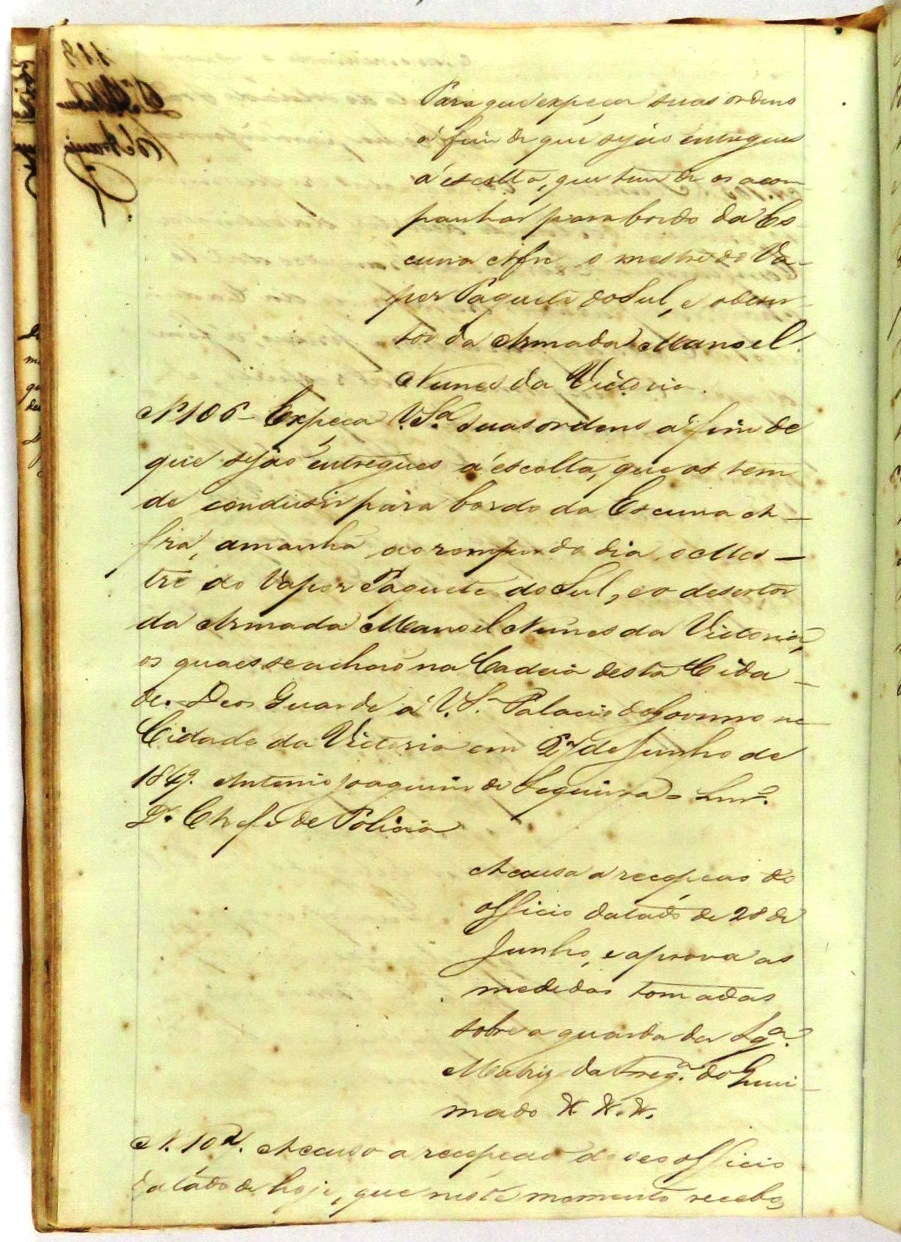 Para que expeça suas ordens
a fim de que sejão entregues
á escolta, que tem de os acom
panhar para bordo da Es
cuna Afra o mestre do Va-
por Paquete do Sul, e o deser-
tor da Armada Manoel
Nunes da Victoria.
Nº 106 - Expeça V. Sª suas ordens a fim de
que sejão entregues á escolta, que os tem
de condusir para bordo da Escuna A-
fra, amanhã ao romper do dia o Mes-
tre do Vapor Paquete do Sul, e o desertor
da Armada Manoel Nunes da Victoria,
os quaes se achaó na Cadeia desta Cida-
de. Deos Guarde á V. Sª Palacio do Governo na
Cidade da Victoria em 27 de Junho de
1849. Antonio Joaquim de Sequeira = Snr.
Dr. Chefe de Policia
Accusa a recepção do
officio datado de 28 de
Junho, e aprova as
medidas tomadas
sobre a guarda da Igª
Matriz da Fregª do Quei-
mado &. &. &.
N. 107. Accuso a recepção do seo officio
datado de hoje, que neste momento recebo,